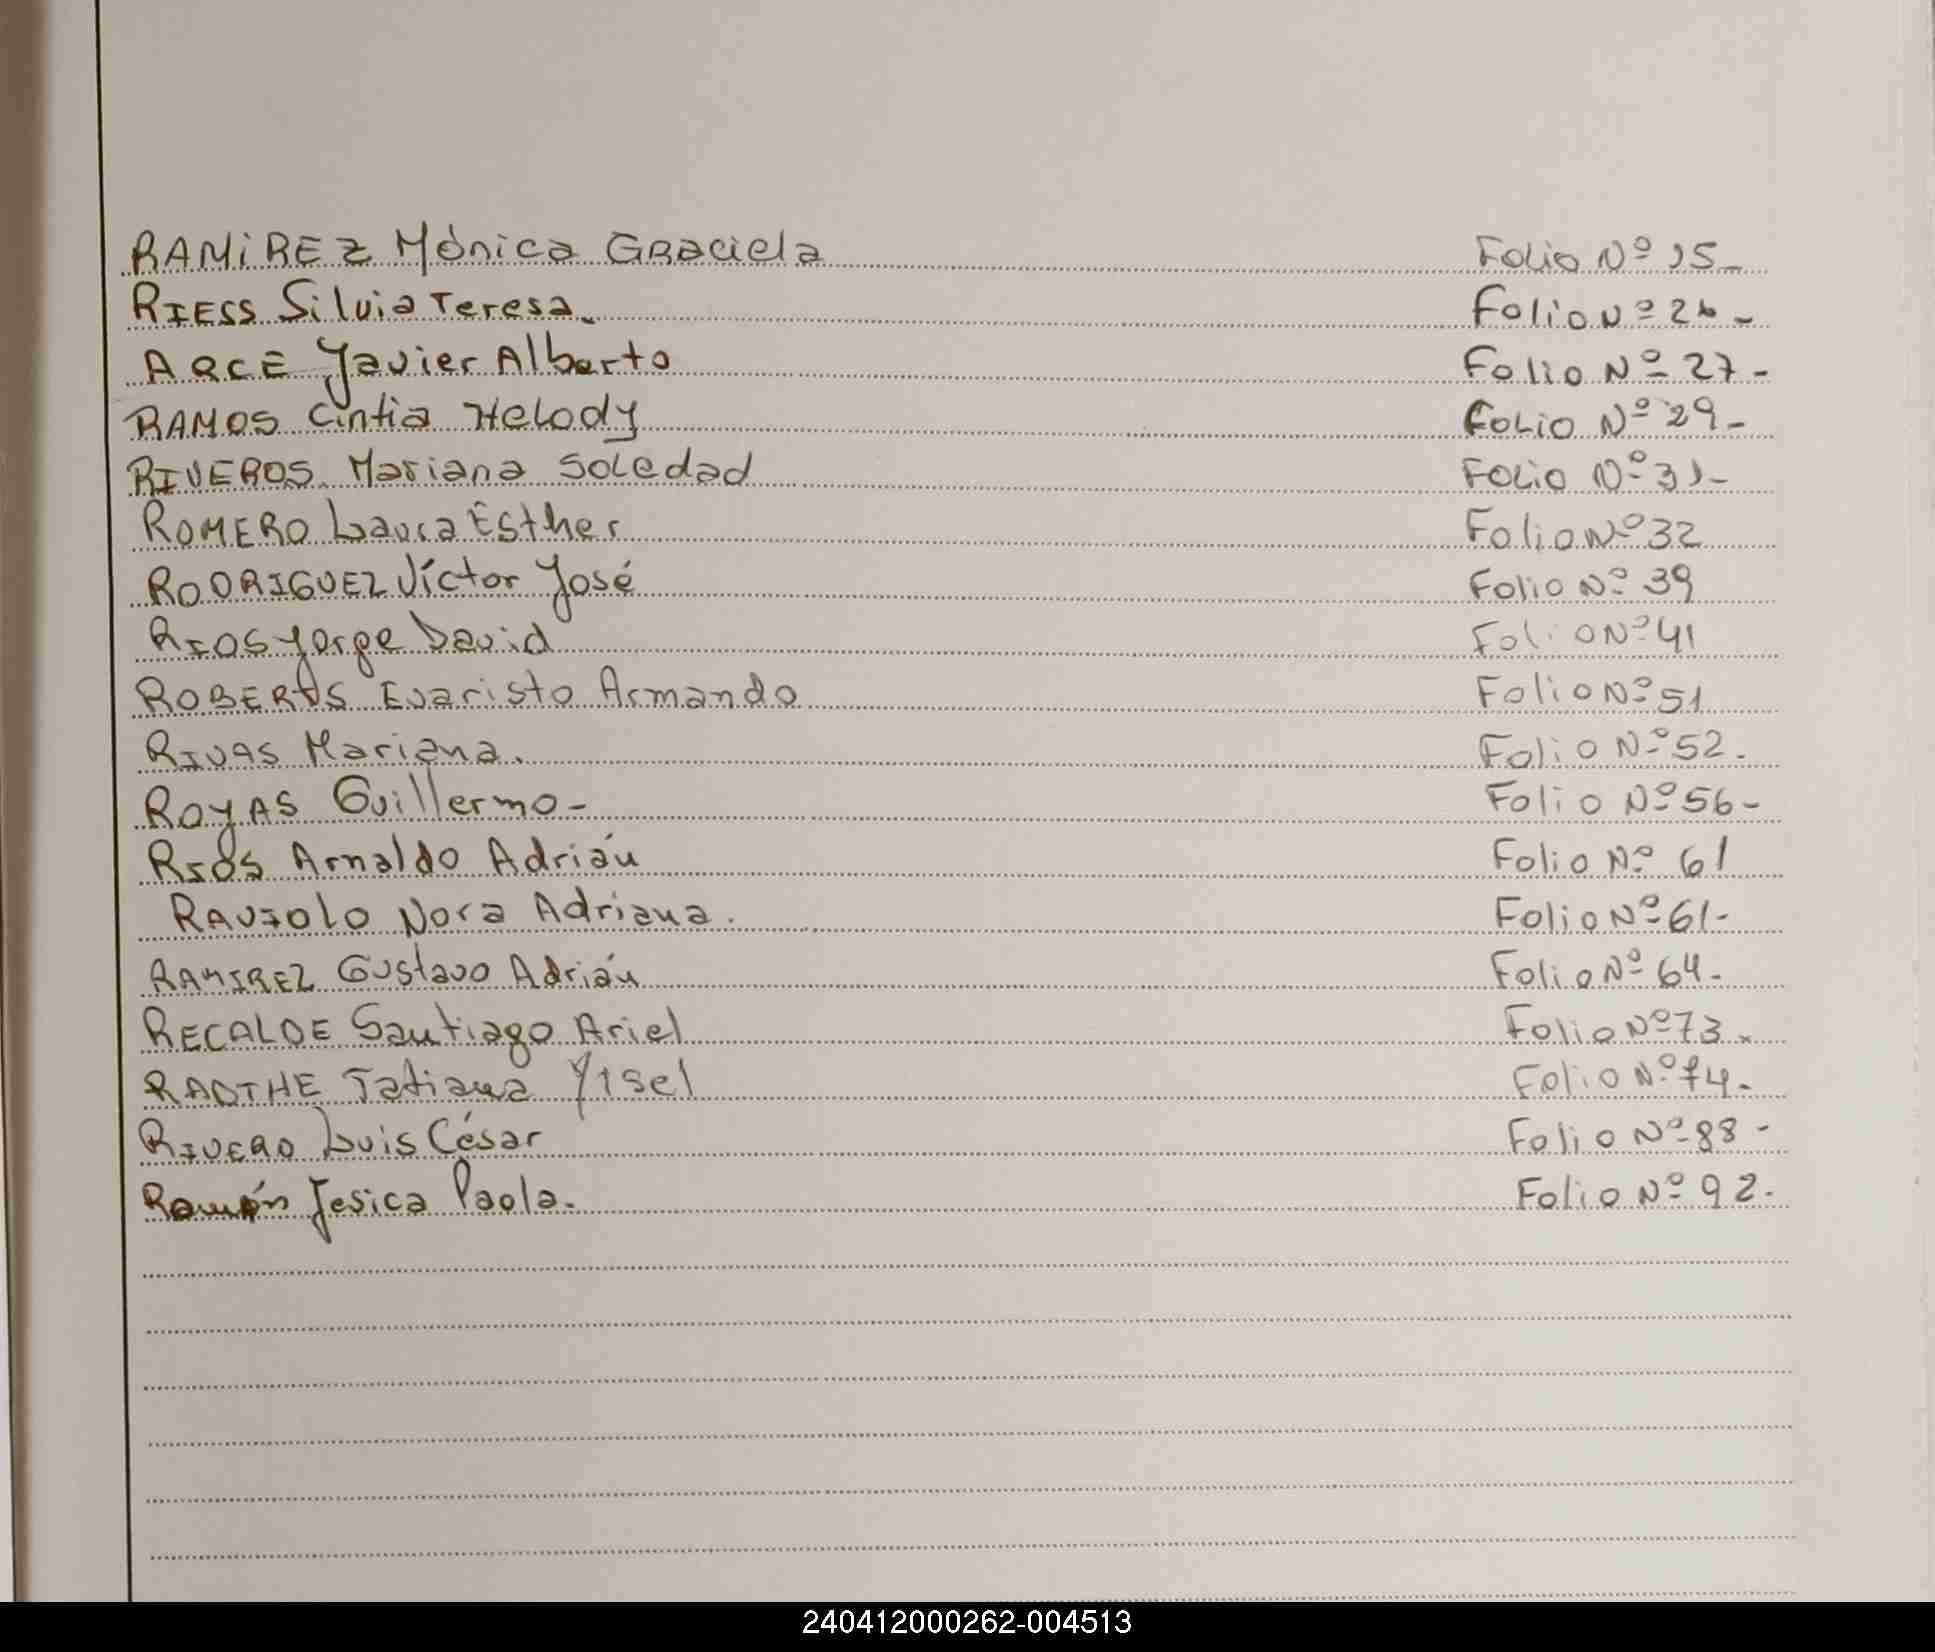 RAMIREZ Mónica Graciela Folio Nº 15-
RIESS Silvia Teresa. Folio Nº 26-
ARCE Javier Alberto Folio Nº 27-
RAMOS Cintia Melody Folio Nº 29-
RIVEROS Mariana Soledad Folio Nº 31-
ROMERO Laura Esther Folio Nº 32
RODRIGUEZ Víctor José Folio Nº 39
RIOS Jorge David Folio Nº 41
Evaristo Armando Folio Nº 51
RIVAS Mariana. Folio Nº 52.
ROYAS Guillermo- Folio Nº 56-
RIOS Arnaldo Adrián Folio Nº 61
RAVIOLO Nora Adriana. Folio Nº 61-
RAMIREZ Gustavo Adrián Folio Nº 64-
RECALDE Santiago Ariel Folio Nº 73.
Tatiana Yisel Folio Nº 74.
RIVERO Luis César Folio Nº 88-
Ramón Jesica Paola. Folio Nº 92.
240412000262-004513